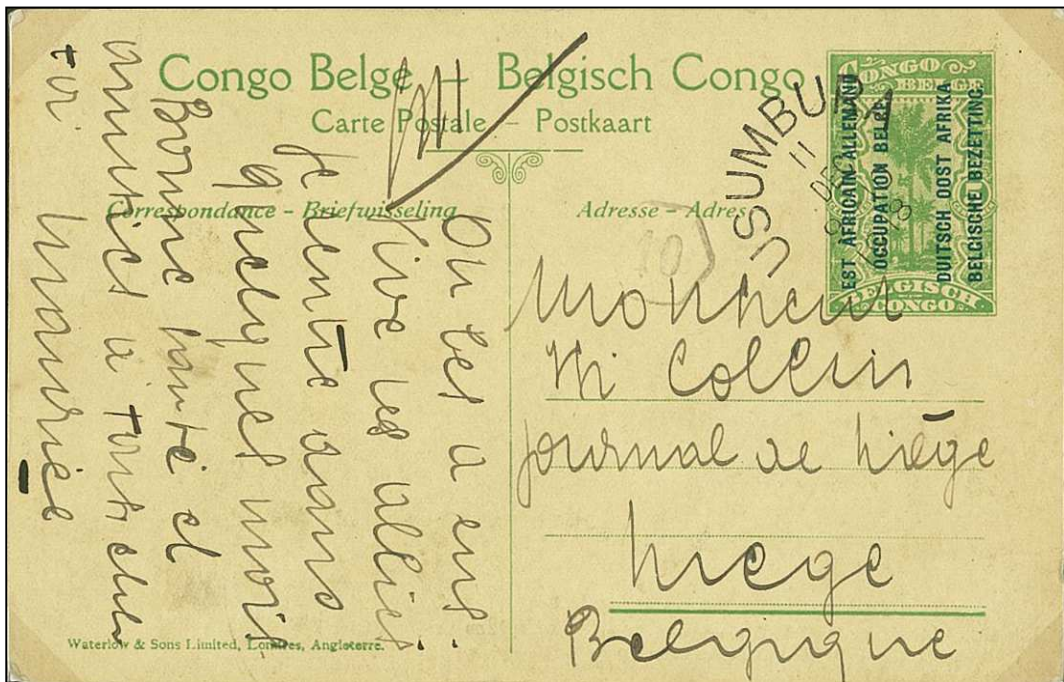 Congo Belge – Belgisch Congo
Carte Postale – Postkaart
Correspondance – Briefwisseling
Adresse – Adres
CONGO BELGE
EST AFRICAIN ALLEMAND
OCCUPATION BELGE
DUITSCH OOST AFRIKA
BELGISCHE BEZETTING
BELGISCH CONGO
USUMBURA
11
DEC
1918
On les a eus.
Vive les alliés.
Je rentre dans
quelques mois
Bonne santé et
amitiés à tous chez
toi
Maurice
Monsieur
Collin
Journal de Liège
Liège
Belgique
Waterlow & Sons Limited, Londres, Angleterre.